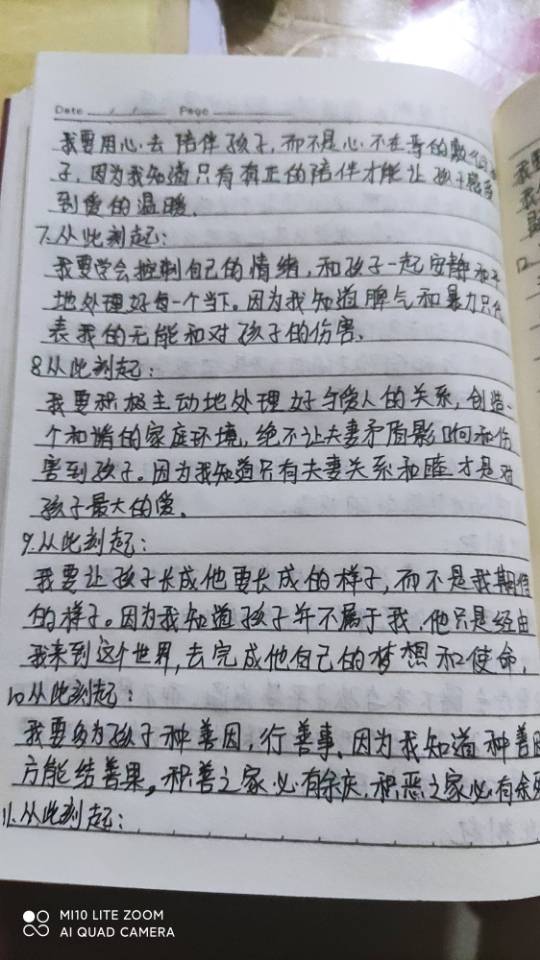 Date / / Page
我要用心去陪伴孩子,而不是心不在焉的敷衍孩
子,因为我知道只有真正的陪伴才能让孩子感受
到爱的温暖.
7.从此刻起:
我要学会控制自己的情绪,和孩子一起安静和平
地处理好每一个当下。因为我知道脾气和暴力只代
表我的无能和对孩子的伤害.
8从此刻起:
我要积极主动地处理好与爱人的关系,创造一
个和谐的家庭环境,绝不让夫妻矛盾影响和伤
害到孩子。因为我知道只有夫妻关系和睦才是对
孩子最大的爱.
9.从此刻起:
我要让孩子长成他要长成的样子,而不是我期待
的样子。因为我知道孩子并不属于我.他只是经由
我来到这个世界,去完成他自己的梦想和使命.
10从此刻起:
我要多为孩子种善因,行善事、因为我知道种善因
方能结善果。积善之家必有余庆.积恶之家必有余殃
11.从此刻起:
MI10 LITE ZOOM
AI QUAD CAMERA